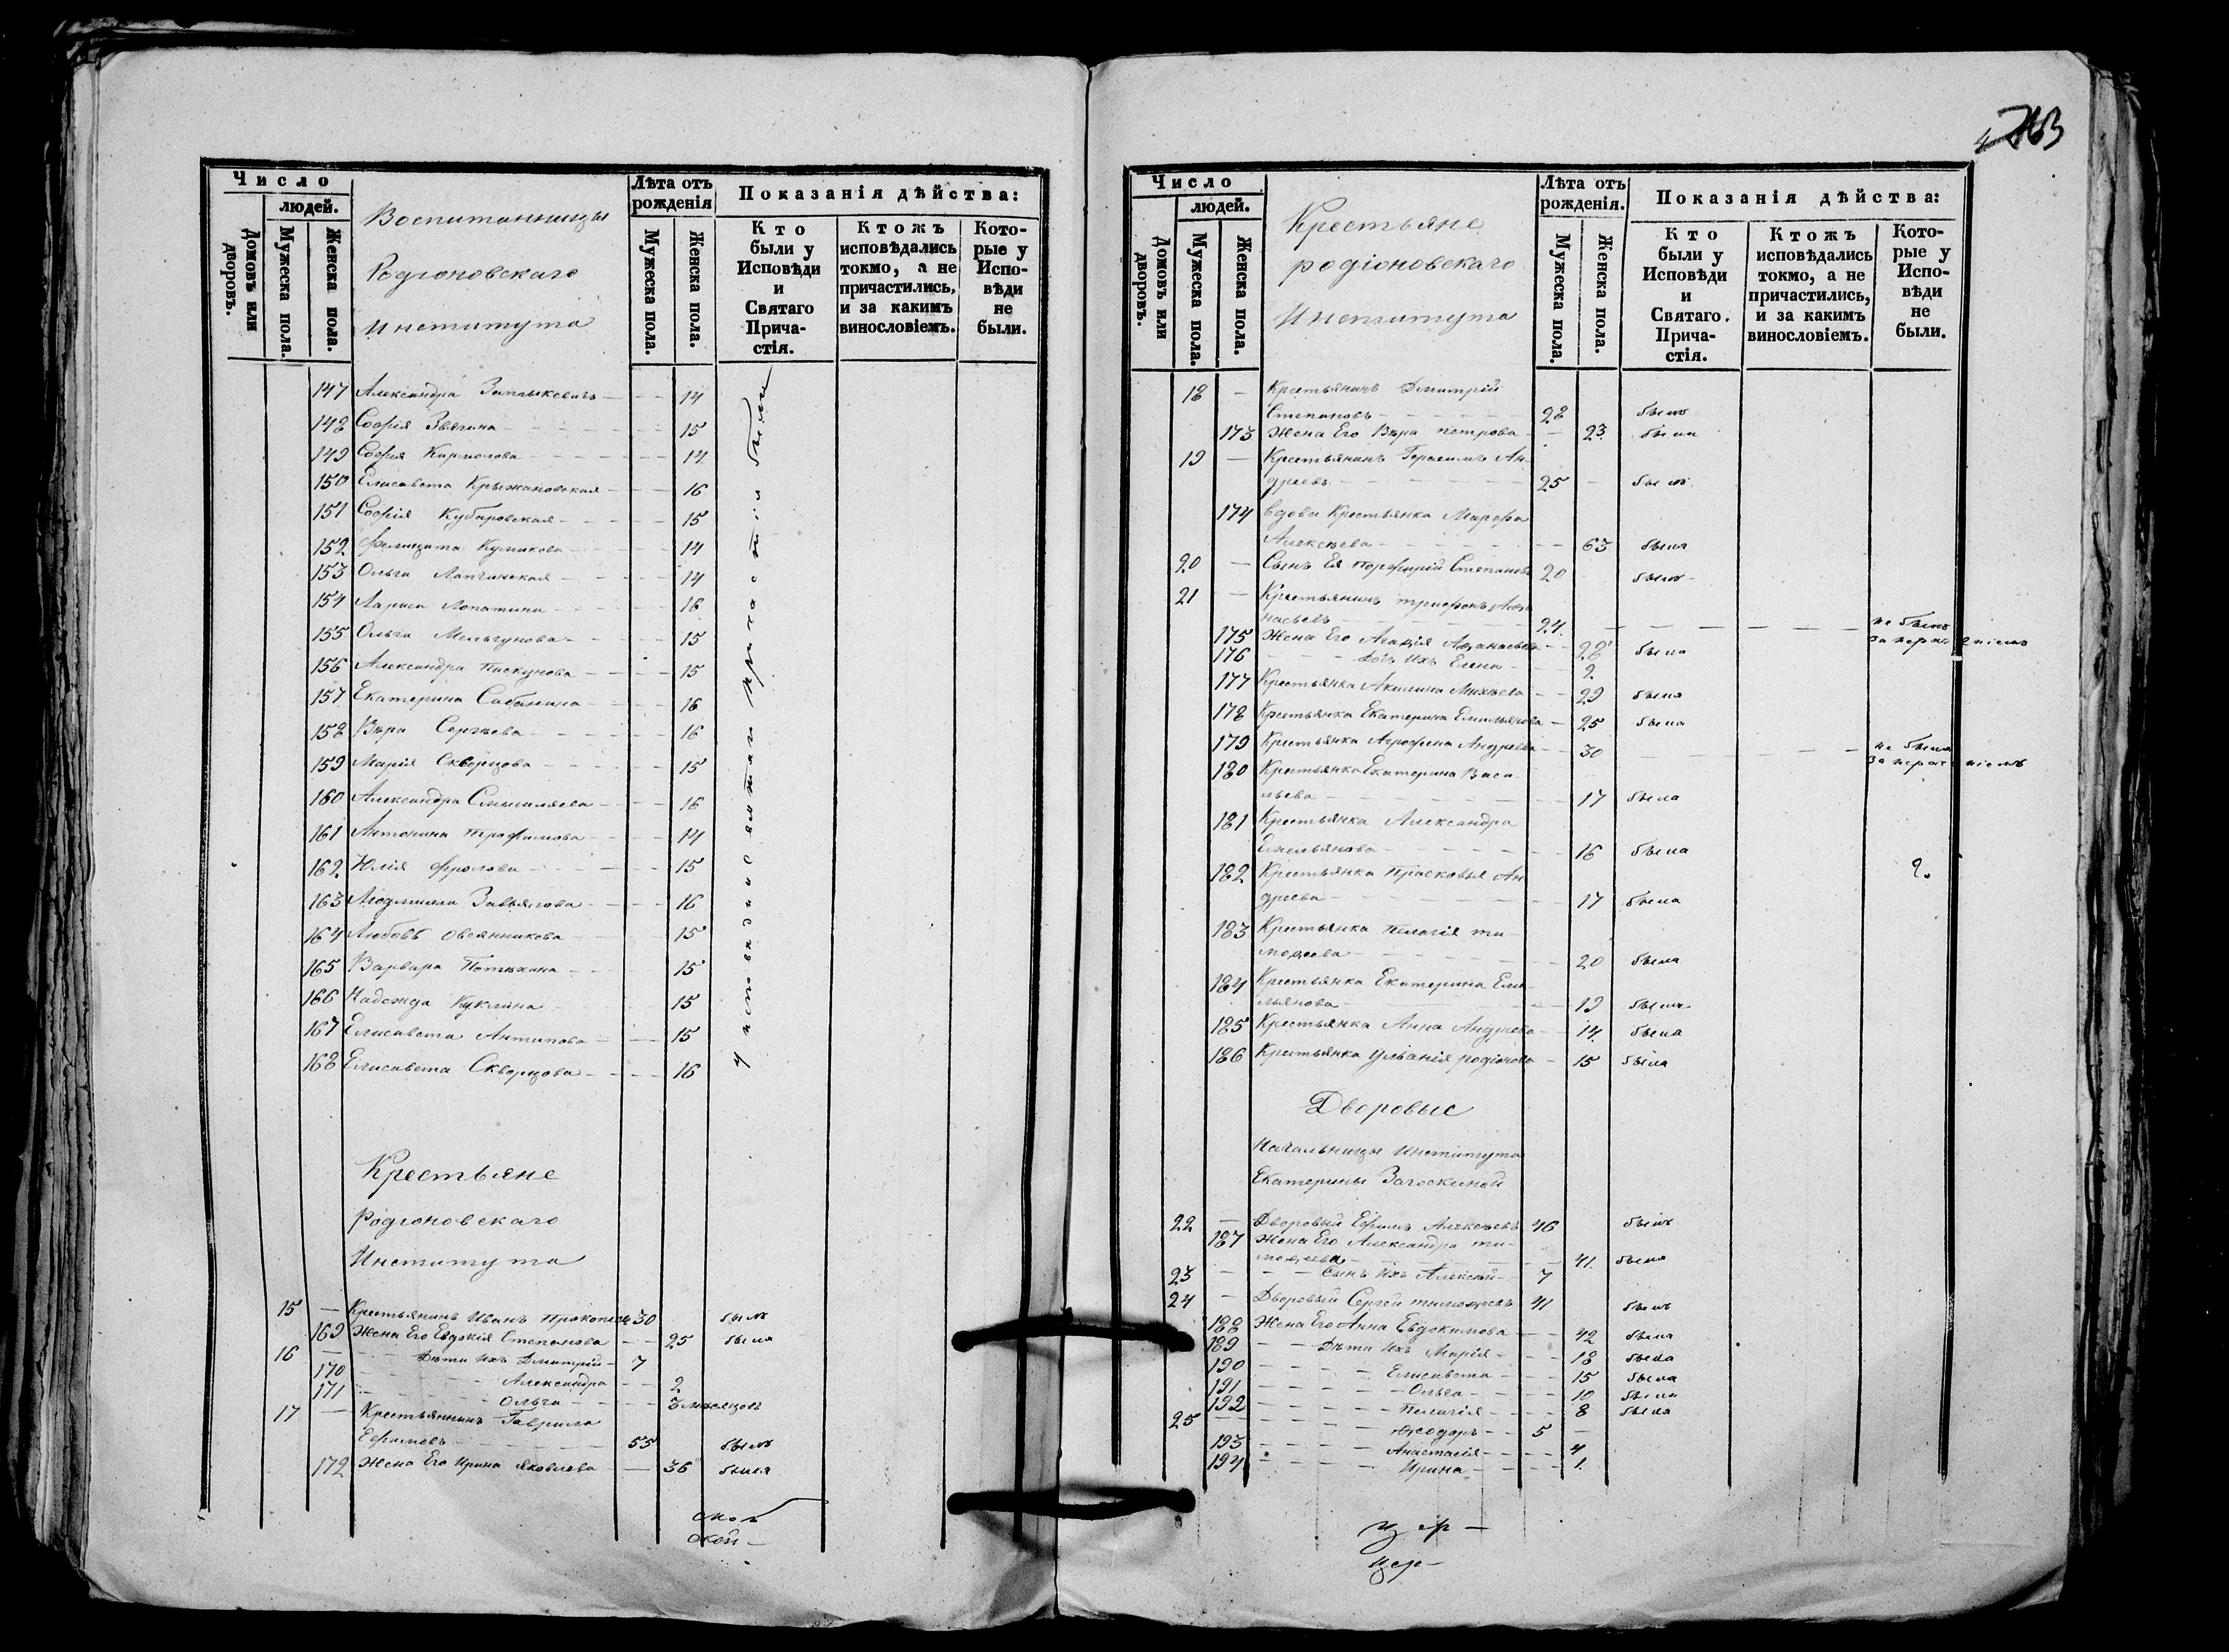 Число
людей.
Домовъ или дворовъ.
Мужеска пола.
Женска пола.
Воспитанницы
Родіоновскаго
Института
Лѣта отъ рожденія
Мужеска пола.
Женска пола.
Показанія дѣйства:
Кто были у Исповѣди и Святаго Прича-стія.
Ктожъ исповѣдались токмо, а не причастились, и за какимъ винословіемъ.
Кото-рые у Испо-вѣди не были.
147 Александра 14
148 Софія Звягина 15
149 Софія Кармолова 14
150 Елисавета Крыжановская 16
151 Софія Кубаровская 15
152 Фелицата Куликова 14
153 Ольга Лапчинская 14
154 Лариса Лопатина 16
155 Ольга Мельгунова 15
156 Александра Пискунова 15
157 Екатерина Сабанина 16
158 Вѣра Сергѣева 16
159 Марія Скворцова 15
160 Александра Смышляева 16
161 Антонина Трофимова 14
162 Юлія Фролова 15
163 Людмила Завьялова 16
164 Любовь Овсянникова 15
165 Варвара Потѣхина 15
166 Надежда Куклина 15
167 Елисавета Антипова 15
168 Елисавета Скворцова 16
У исповѣди и святаго причастія были
Крестьяне
Родіоновскаго
Института
15 — Крестьянинъ Иванъ 30 былъ
169 Жена Его Евдокія Степанова 25 была
16 — Дѣти Ихъ Дмитрій 7
170 Александра 2
171 Ольга 3 мѣсяцовъ
17 — Крестьянинъ Гаврила
Ефимовъ 55 былъ
172 Жена Его Ирина Яковлева 36 была
763
Число
людей.
Домовъ или дворовъ.
Мужеска пола.
Женска пола.
Крестьяне
родіоновскаго
Института
Лѣта отъ рожденія.
Мужеска пола.
Женска пола.
Показанія дѣйства:
Кто были у Исповѣди и Святаго. Прича-стія.
Ктожъ исповѣдались токмо, а не причастились, и за какимъ винословіемъ.
Кото-рые у Испо-вѣди не были.
18 — Крестьянинъ Дмитрій
Степановъ 28 былъ
173 Жена Его Вѣра петрова 23 была
19 — Крестьянинъ Герасимъ Ан
дреевъ 25 былъ
174 вдова Крестьянка Марфа
Алексѣева 63 была
20 — Сынъ Ея Порфирій Степановъ 20 былъ
21 — Крестьянинъ трифонъ Афа
насьевъ 24. не былъ
175 Жена Его Агафія Афанасьева 28 была
176 Дочь Ихъ Елена 2
177 Крестьянка Акилина Михѣева 29 была
178 Крестьянка Екатерина Емильянова 25 была
179 Крестьянка Агрофена Андреева 30 не была
180 Крестьянка Екатерина Васи
льева 17 была
181 Крестьянка Александра
Емельянова 16 была
182 Крестьянка Прасковья Ан 2.
дреева 17 была
183 Крестьянка Пелагія ти
мофеева 20 была
184 Крестьянка Екатерина Еме
льянова 19 была
185 Крестьянка Анна Андреева 14. была
186 Крестьянка Уліанія родіонова 15 была
Дворовые
Начальницы Института
Екатерины Загоскиной
22 — Дворовый Ефимъ Алексѣевъ 46 былъ
187 Жена Его Александра ти
мофеева 41. была
23 — Сынъ Ихъ Алексѣй 7
24 — Дворовый Сергѣй тимофеевъ 41 былъ
188 Жена Его Анна Евдокимова 42 была
189 Дѣти Ихъ Марія 18 была
190 Елисавета 15 была
191 Ольга 10 была
192 Пелагія 8 была
25 Ѳеодоръ 5
193 Анастасія 4
194 Ирина 1.